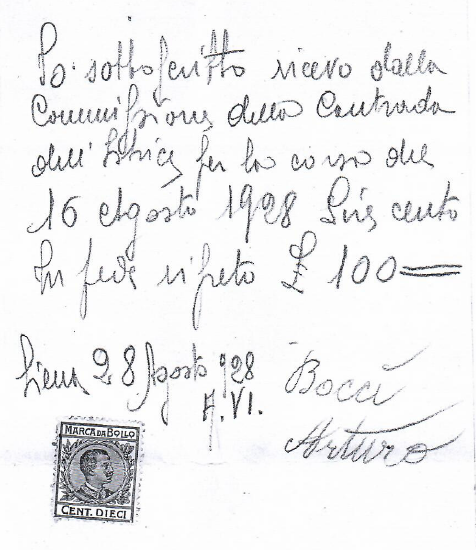 Io sottoscritto ricevo dalla
Commissione della Contrada
dell'Istrice per la corsa del
16 Agosto 1928 Lire cento
In fede ripeto £ 100
Siena 28 Agosto 928
A. VI.
Bocci
Arturo
MARCA DA BOLLO
CENT. DIECI